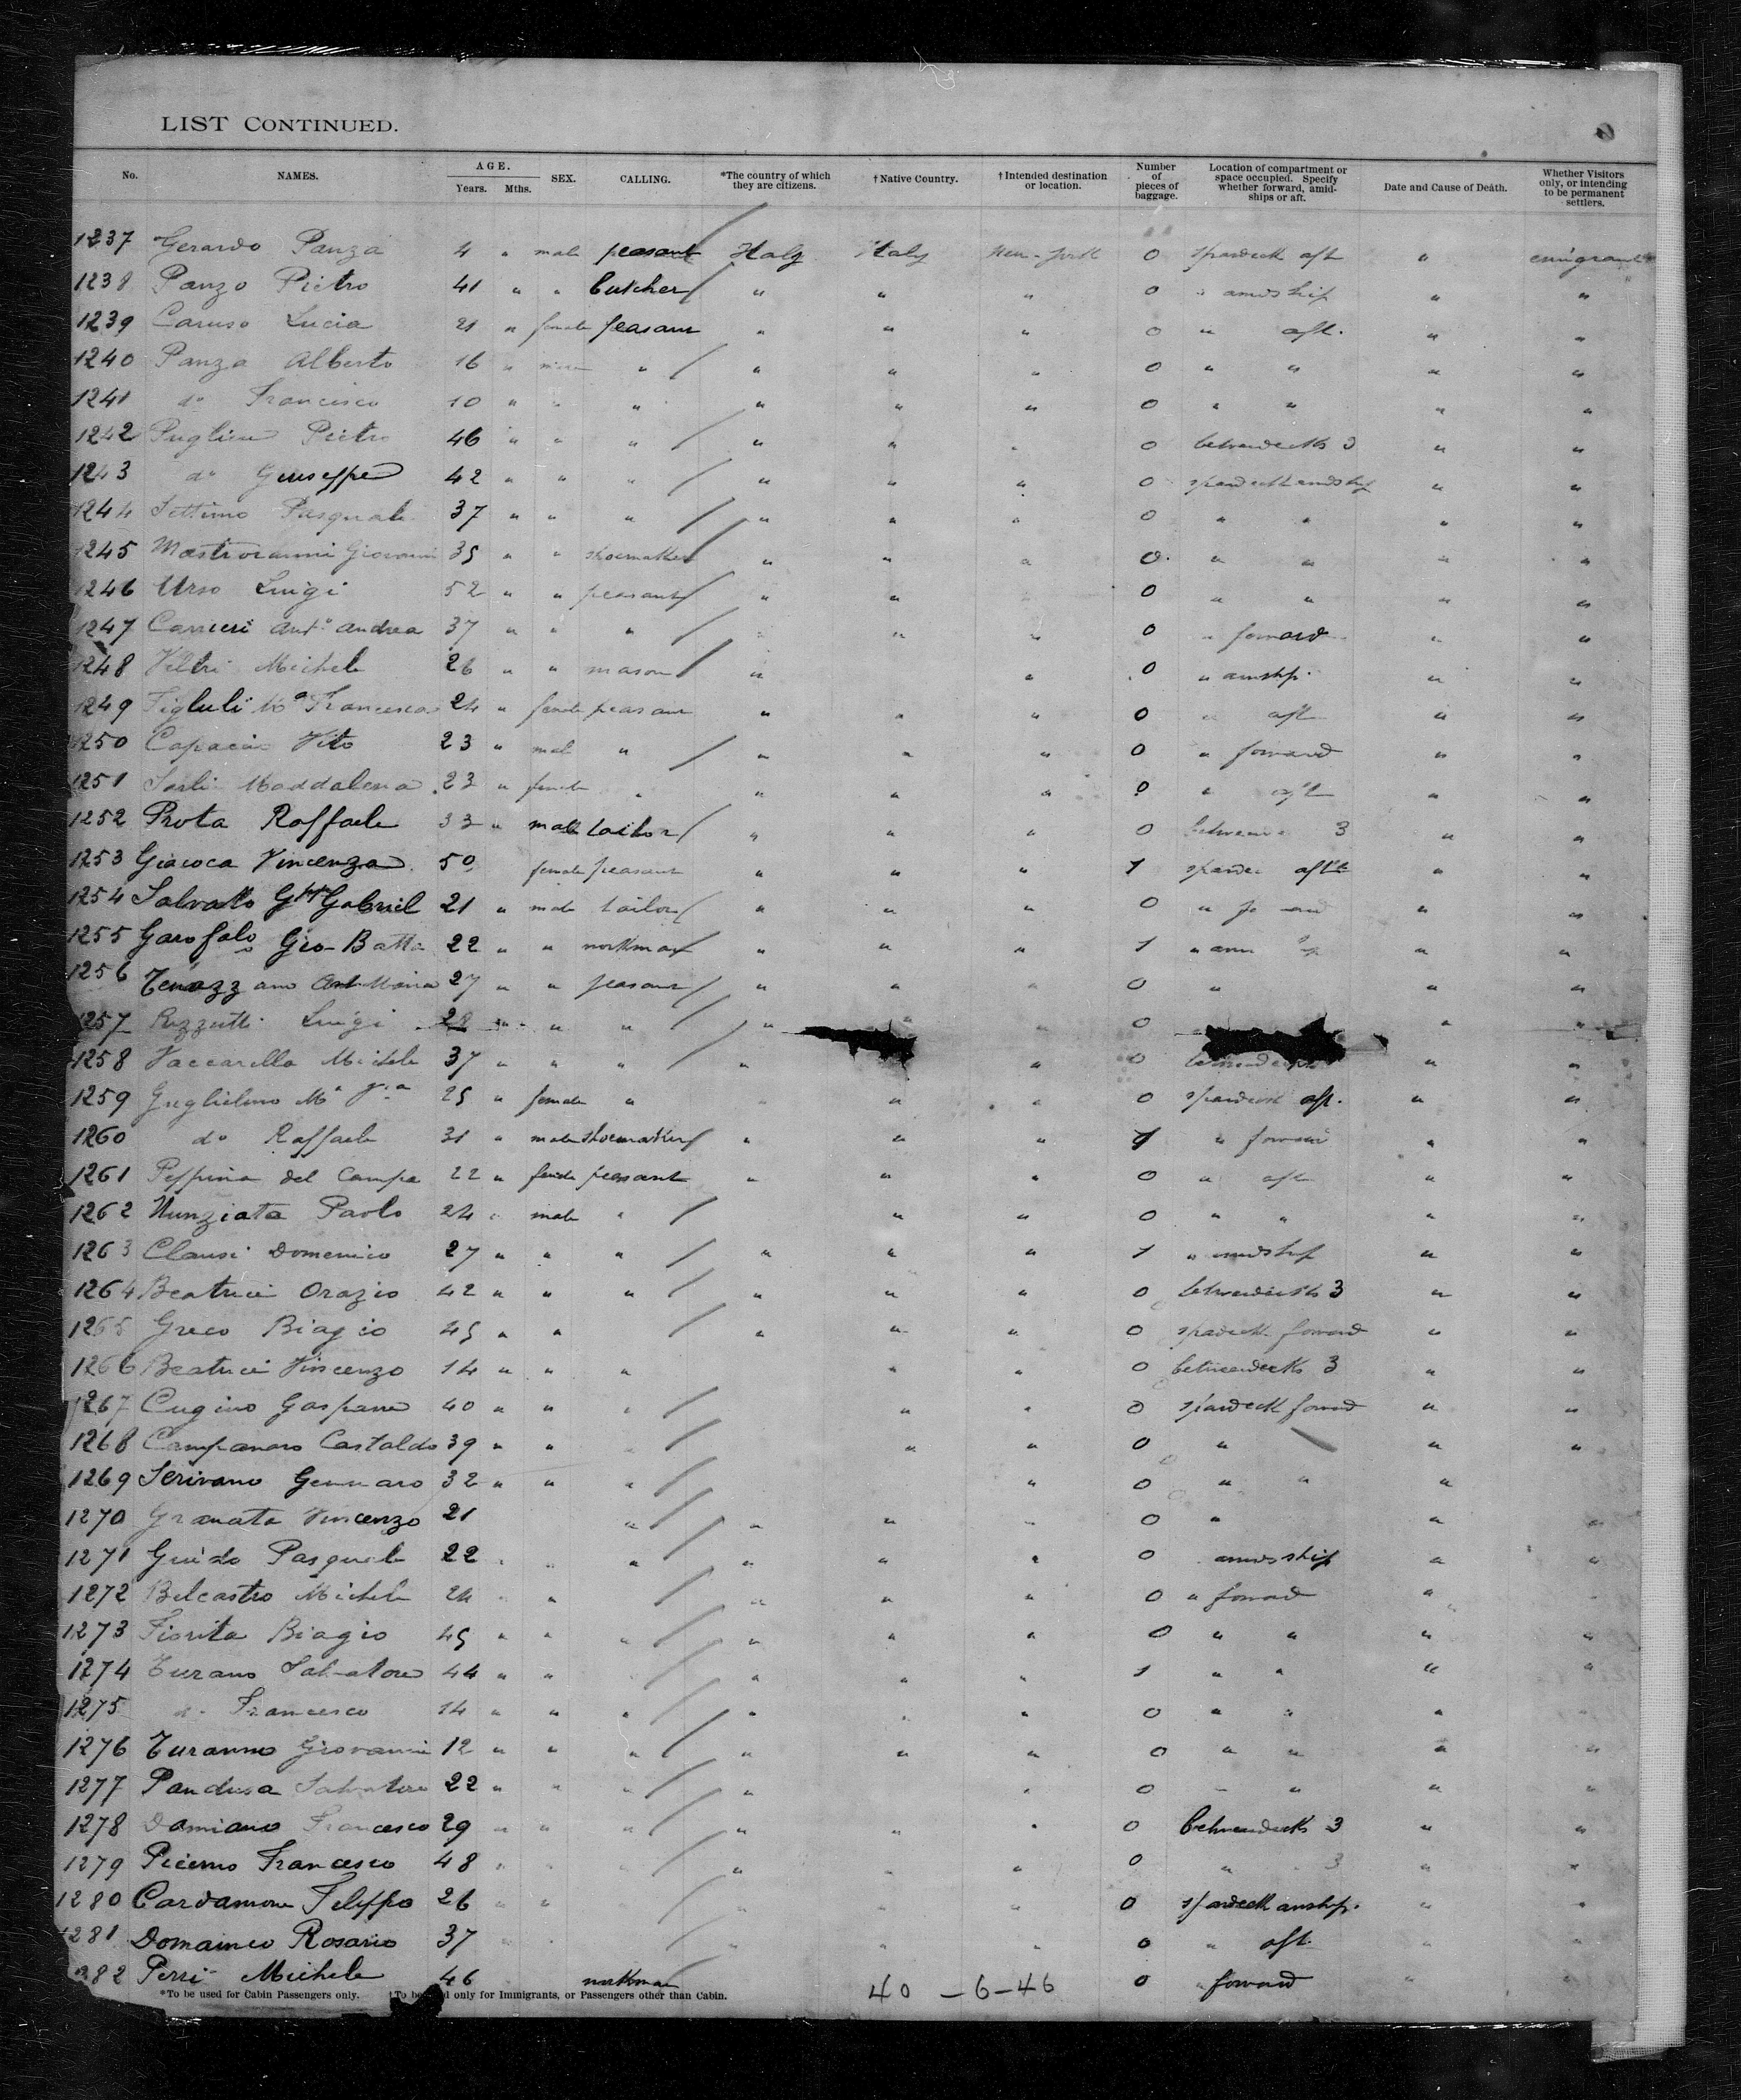 LIST CONTINUED.
No. NAMES. AGE. Years. Mths. SEX. CALLING. *The country of which they are citizens. †Native Country. †Intended destination or location. Number of pieces of baggage. Location of compartment or space occupied. Specify whether forward, amid-ships or aft. Date and Cause of Death. Whether Visitors only, or intending to be permanent settlers.
1237 Gerardo Panza 4 " male peasant Italy Italy New-York 0 spardeck aft " emigrant
1238 Panzo Pietro 41 " " butcher " " " 0 " amidship " "
1239 Caruso Lucia 21 " female peasant " " " 0 " aft. " "
1240 Panza Alberto 16 " " " " " 0 " " " "
1241 do Francisco 10 " " " " " " 0 " " " "
1242 Pietro 46 " " " " " " 0 betwendecks 3 " "
1243 do Giuseppe 42 " " " " " " 0 spardeck amidship " "
1244 Settimo Pasquale 37 " " " " " " 0 " " " "
1245 Mastroianni Giovanni 35 " " shoemaker " " " 0 " " " "
1246 Urso Luigi 52 " " peasant " " 0 " " " "
1247 Carrieri Anto Andrea 37 " " " " " " 0 " forward " "
1248 Veltri Michele 26 " " mason " " 0 " amshp. " "
1249 Figluli Ma Francesca 24 " female peasant " " " 0 " aft " "
1250 Vito 23 " male " " " " 0 " forward " "
1251 Sarli Maddalena 23 " female " " " " 0 " aft " "
1252 Prota Raffaele 33 " male tailor " " " 0 3 " "
1253 Giacoca Vincenza 50 female peasant " " " 1 aft " "
1254 Salvatto Gabriel 21 " male tailor " " " 0 " " "
1255 Garofalo Gio-Batta 22 " " workman " " " 1 " " "
1256 27 " " peasant " " " 0 " " "
1257 Rizzutti Luigi 28 " " " " " 0 " "
1258 Vaccarella Michele 37 " " " " " 0 betwendecks " "
1259 Guglielmo Ma 25 " female " " " 0 spardeck aft. " "
1260 do Raffaele 31 " male shoemaker " " " 1 " forward " "
1261 Peppina del Campa 22 " female peasant " " " 0 " aft " "
1262 Nunziata Paolo 24 " male " " " 0 " " " "
1263 Clausi Domenico 27 " " " " " " 1 " amidship " "
1264 Beatrici Orazio 42 " " " " " " 0 betwendecks 3 " "
1265 Greco Biagio 45 " " " " " 0 spardeck forward " "
1266 Beatrici Vincenzo 14 " " " " " 0 betweendecks 3 " "
1267 Cugino Gaspare 40 " " " " " 0 spardeck forward " "
1268 Campanaro Castaldo 39 " " " " " 0 " " "
1269 Scrivano Gennaro 32 " " " " 0 " " "
1270 Granata Vincenzo 21 " " " " 0 " " "
1271 Guido Pasquale 22 " " " " " 0 amidship " "
1272 Belcastro Michele 24 " " " " " 0 " forward "
1273 Fiorita Biagio 45 " " " " " " 0 " " " "
1274 Turano Salvatore 44 " " " " " 1 " " " "
1275 do Francesco 14 " " " " " " 0 " " " "
1276 Turanno Giovanni 12 " " " " " " 0 " " " "
1277 Pandusa Salvatore 22 " " " " " 0 " " " "
1278 Damiano Francesco 29 " " " " " " 0 betwendecks 3 " "
1279 Picerno Francesco 48 " " " " 0 " 3 " "
1280 Cardamone Filippo 26 " " " " " 0 spardeck amshp. " "
1281 Domainco Rosario 37 " " " " 0 " aft. " "
282 Perri Michele 46 workman 0 " forward "
*To be used for Cabin Passengers only. †To be d only for Immigrants, or Passengers other than Cabin.
40 - 6 - 46